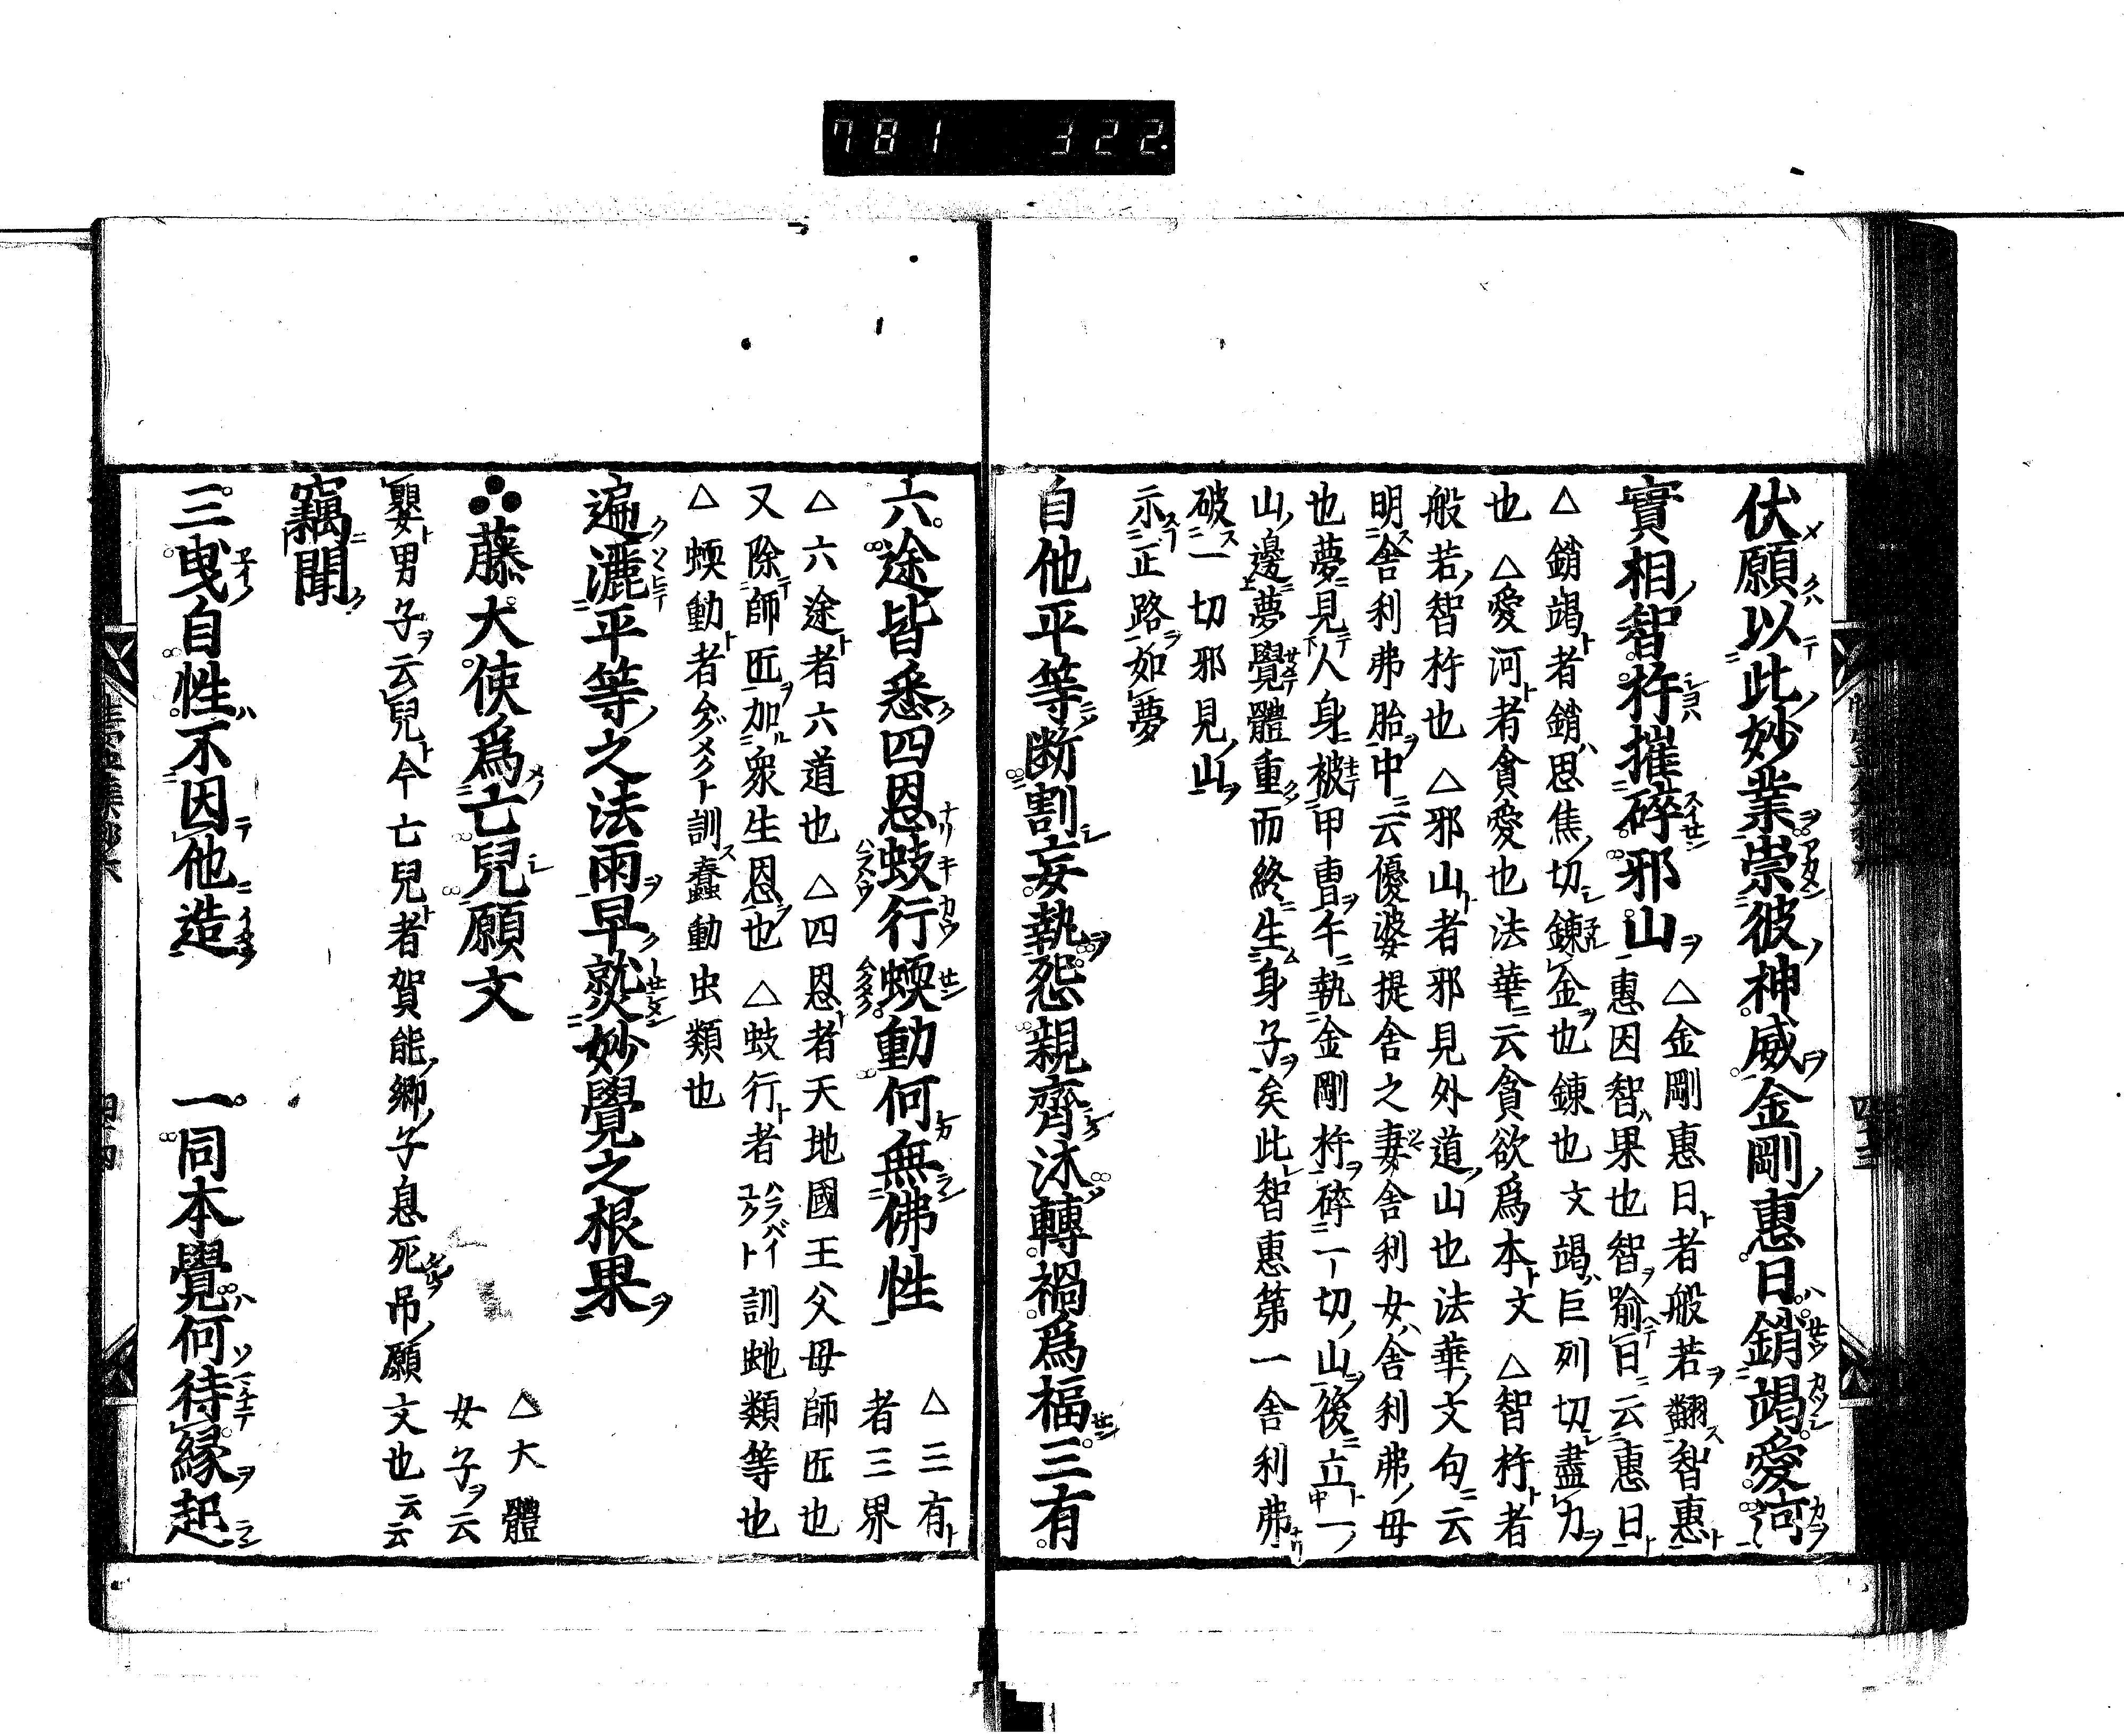 781 322.
伏願以此妙業崇彼神威金剛惠日銷竭愛河
實相智杵摧碎邪山
△金剛惠日者般若翻智惠
惠因智果也智喻日云惠日
△銷竭者銷思焦切鍊金也鍊也文竭巨列切盡力
也△愛河者貪愛也法華云貪欲爲本文△智杵者
般若智杵也△邪山者邪見外道山也法華文句云
明舍利弗胎中云優婆提舍之妻舍利女舍利弗母
也夢見人身被甲冑午執金剛杵碎一切山後立一
山邊夢覺體重而終生身子矣此智惠第一舍利弗
破一切邪見山
示正路如夢
自他平等断割妄執怨親齊沐轉禍爲福三有
六途皆悉四恩蚑行蝡動何無佛性
△三有
者三界
△六途者六道也△四恩者天地國王父母師匠也
又除師匠加衆生恩也△蚑行者ハラバイユクト訓虵類等也
△蝡動者ムグメクト訓蠢動虫類也
遍灑平等之法雨早爇妙覺之根果
藤大使爲亡兒願文
△大體
女子云
嬰男子云兒今亡兒者賀能卿子息死吊願文也云云
竊聞
三曳自性不因他造 一同本覺何待縁起